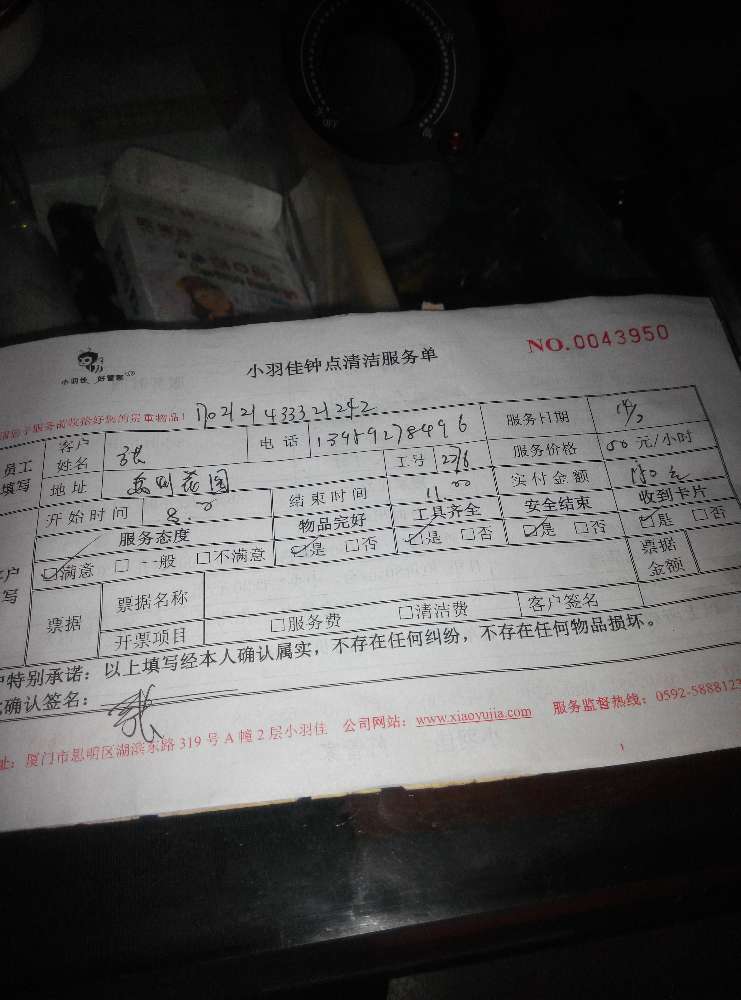 小羽佳 好管家
小羽佳钟点清洁服务单
NO.0043950
服务前收拾好您的贵重物品！
员工填写 客户姓名 张 电话 服务日期 14/
地址 花园 工号 服务价格 元/小时
开始时间 8 00 结束时间 11 00 实付金额 元
服务态度 物品完好 工具齐全 安全结束 收到卡片
☑满意 □一般 □不满意 ☑是 □否 ☑是 □否 ☑是 □否 ☑是 □否
票据 票据名称 票据金额
开票项目 □服务费 □清洁费 客户签名
特别承诺：以上填写经本人确认属实，不存在任何纠纷，不存在任何物品损坏。
确认签名：
址：厦门市思明区湖滨东路319号A幢2层小羽佳 公司网站：www.xiaoyujia.com 服务监督热线：0592-5888123
1